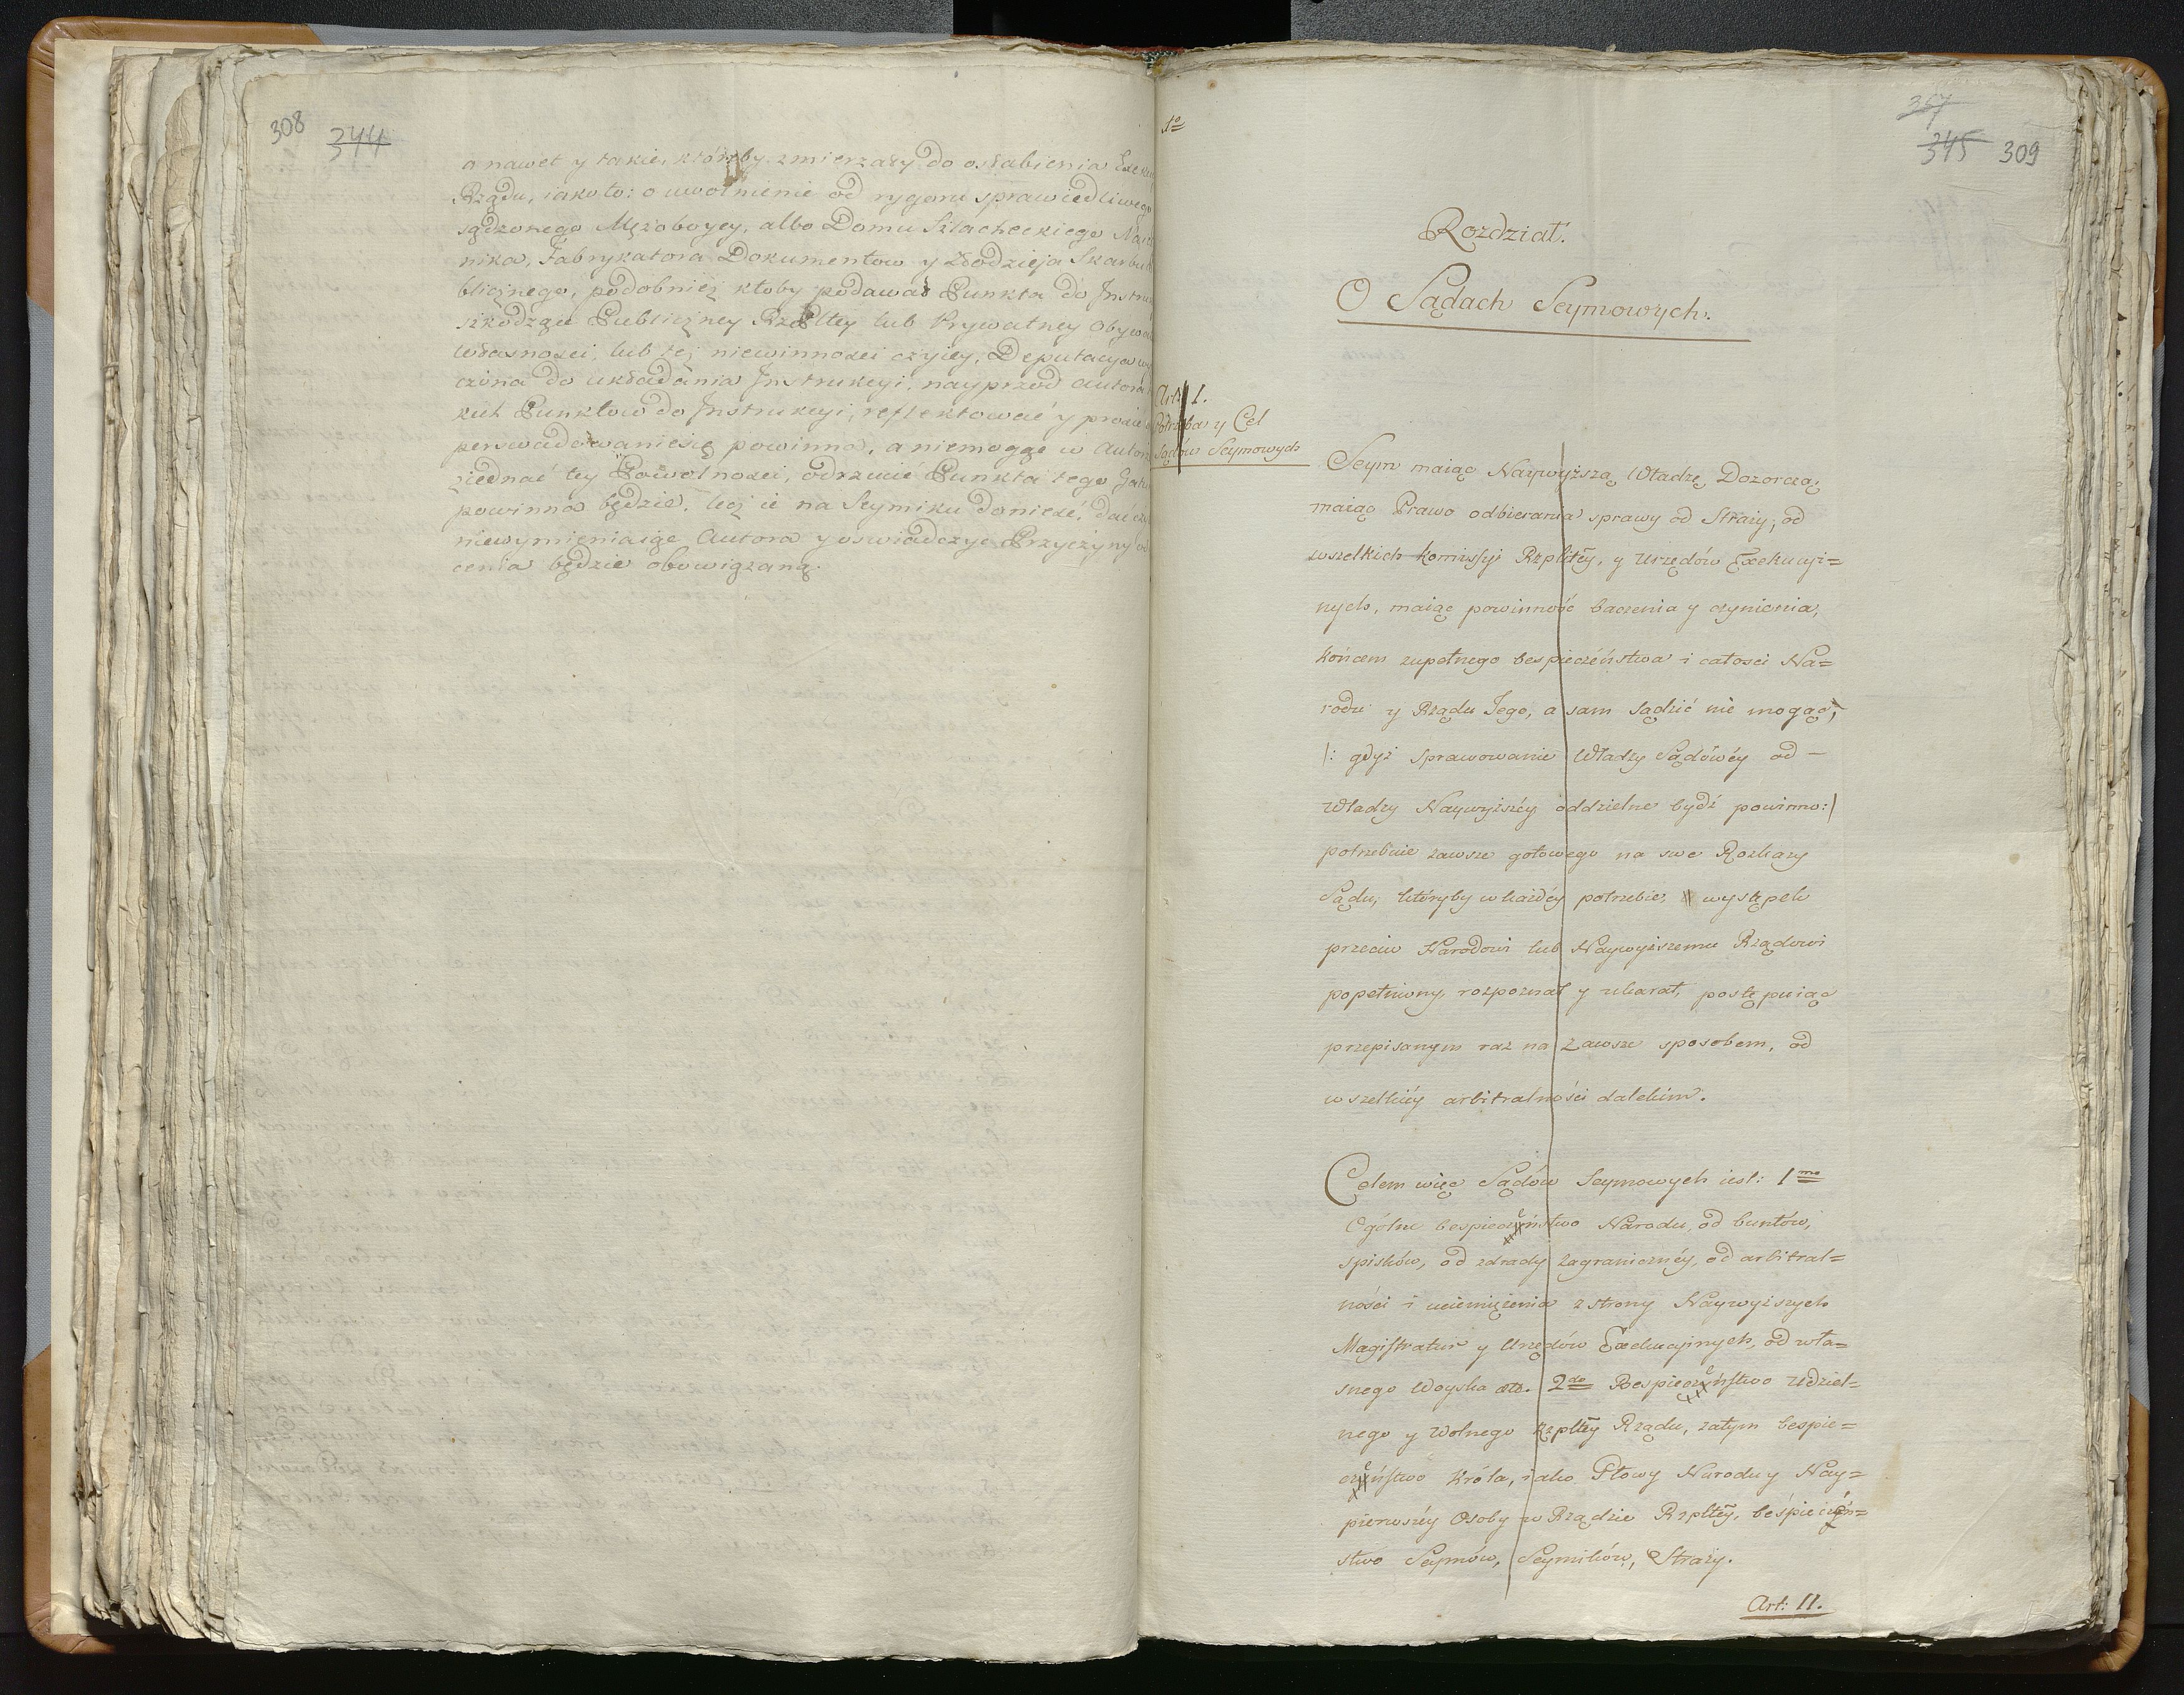 308 344
a nawet y takie, któreby zmierzały do osłabienia
Rządu, iako to: o uwolnienie od rygoru sprawiedliwego
sądzonego Mężoboycy, albo Domu Szlacheckiego
nika, Fabrykatora Dokumentow y Złodzieja Skarbu
blicznego, podobnież ktoby podawał Punkta do
szkodzące Publiczney Rzpltey lub Prywatney
własności, lub też niewinności czyiey, Deputacya
czona do układania Instrukcyi, nayprzod Autora
kich Punktow do Instrukcyi, reflektować y
perswadowaniesię powinna, a niemogąc w
ziednać tey Powolności, odrzucić Punkta tego
powinna będzie, lecz ie na Seymiku donieść,
niewymieniaiąc Autora y oswiadczyć Przyczyny
cenia będzie obowiązaną.
1º
367
345 309
Rozdział.
O Sądach Seymowych.
Art: I.
Potrzeba y Cel
Sądów Seymowych
Seym maiąc Naywyższą Władzę Dozorczą,
maiąc Prawo odbierania sprawy od Straży, od
wszelkich komissyi Rzpltey, y Urzędów Exekucyi=
nych, maiąc powinność baczenia y czynienia,
końcem zupełnego bespieczeństwa i całosci Na=
rodu y Rządu Jego, a sam sądzić nie mogąc,
/: gdyż sprawowanie Władzy Sądowéy od —
Władzy Naywyższéy oddzielne bydź powinno:/
potrzebuie zawsze gotowego na swe Rozkazy
Sądu, któryby w każdéy potrzebie, wystąpek
przeciw Narodowi lub Naywyższemu Rządowi
popełniony, rozpoznał y ukarał, postępuiąc
przepisanym raz na zawsze sposobem, od
wszelkiéy arbitralności dalekim.
Celem więc Sądów Seymowych iest: 1mo
Ogólne bespieczeństwo Narodu, od buntów,
spisków, od zdrady zagranicznéy, od arbitral=
ności i uciemiężenia z strony Naywyższych
Magistratur y Urzędów Exekucyinych, od wła=
snego Woyska etc. 2do Bespieczeństwo Udziel=
nego y Wolnego Rzpltey Rządu, zatym bespie=
czeństwo Króla, iako Głowy Narodu y Nay=
pierwszéy Osoby w Rządzie Rzpltéy, bespieczeń=
stwo Seymów, Seymików, Straży.
Art: II.